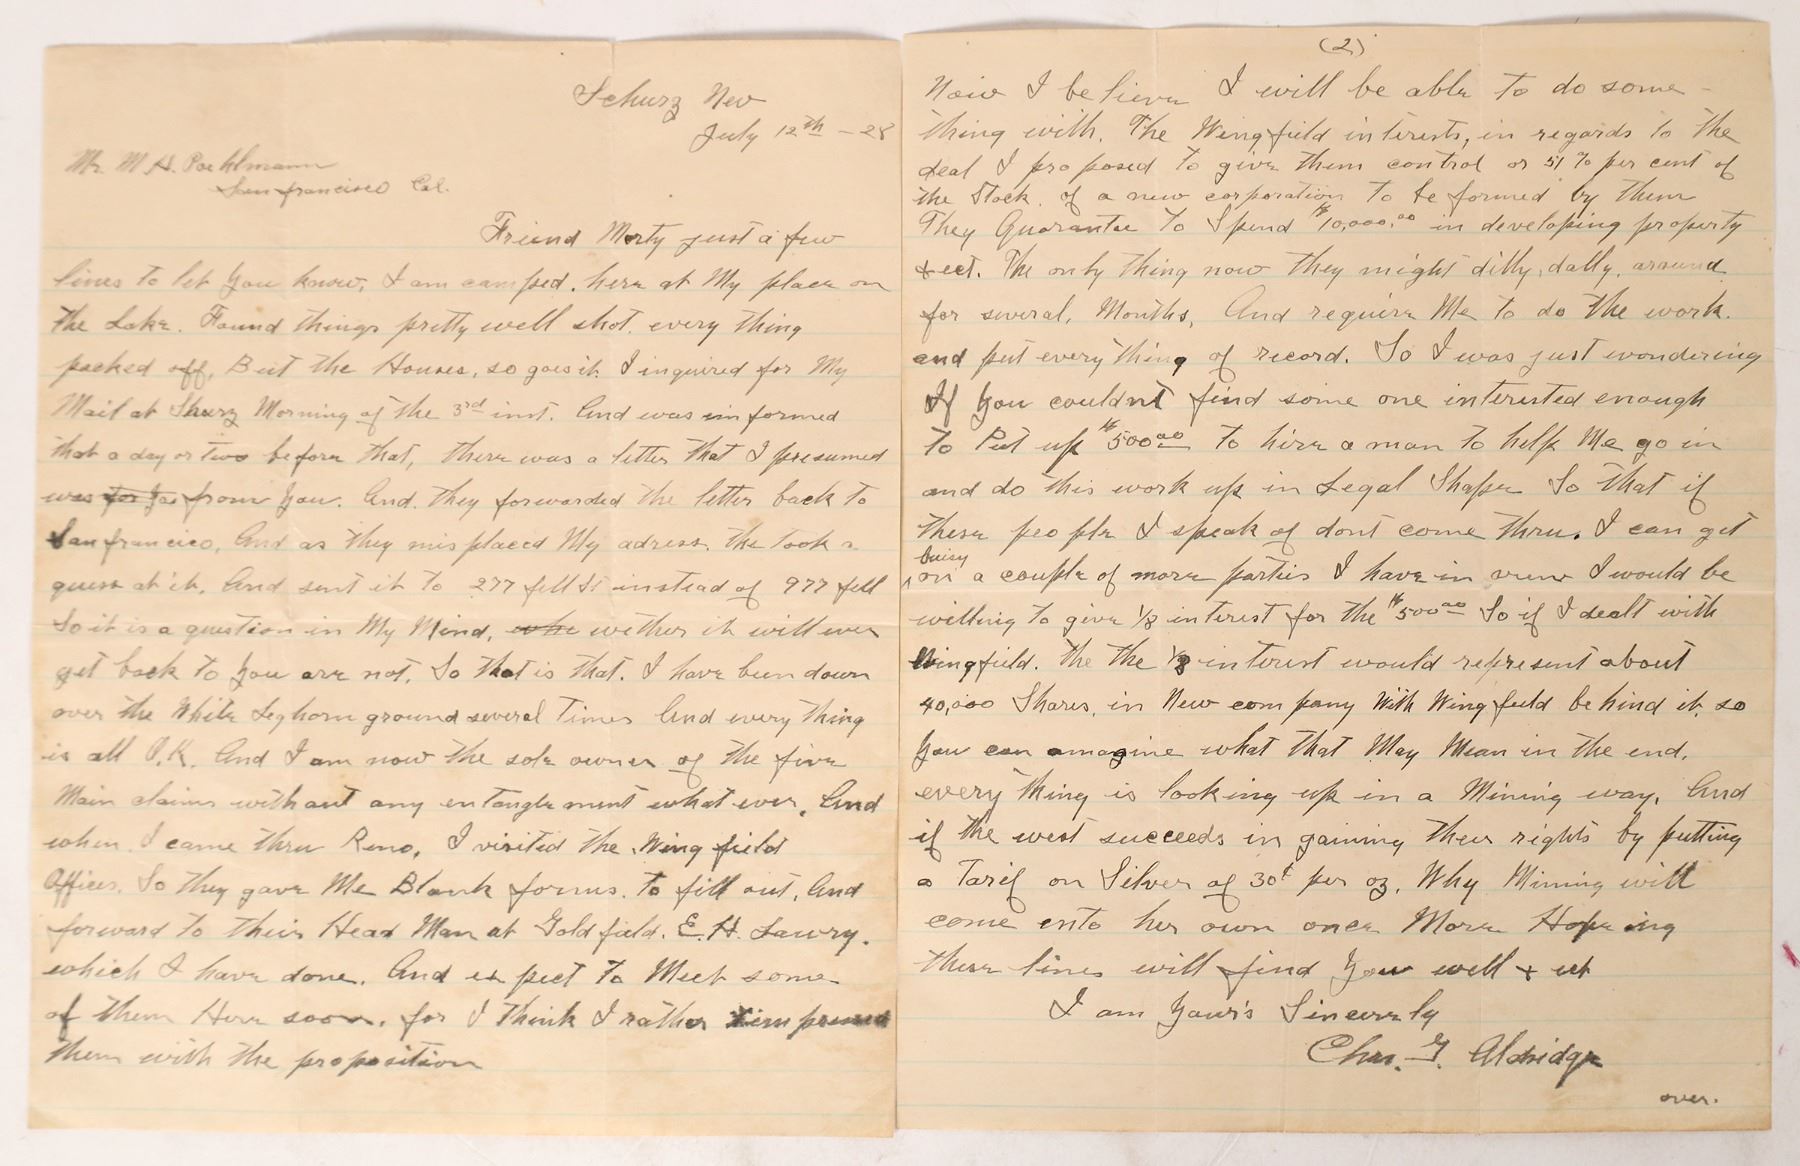 Schurz Nev
July 12th - 28
Mr. M H. Poehlmann
San francisco Cal.
Friend Morty just a few
lines to let you know, I am camped, here at My place on
the Lake. Found things pretty well shot. every thing
packed off, But the Houses, so goes it. I inquired for My
Mail at Shurz Morning of the 3rd inst. And was informed
that a day or two before that, there was a letter that I presumed
was for you from you. And. they forwarded the letter back to
San francico, And as they misplaced My adress. the took a
guess at it. And sent it to 277 fell St instead of 977 fell
So it is a question in My Mind, whe wether it will ever
get back to you are not. So that is that. I have been down
over the White Leghorn ground several Times And every thing
is all O.K. And I am now the sole owner of the five
Main claims without any entanglement what ever. And
when I came thru Reno, I visited the Wingfield
Offices. So they gave Me Blank forms. to fill out, And
forward to their Head Man at Goldfield. E. H. Lawry.
which I have done. And expect to Meet some
of them Here soon, for I think I rather impressed
them with the proposition
(2)
Now I believe I will be able to do some-
thing with. The Wingfield interests, in regards to the
deal I proposed to give them control or 51% per cent of
the Stock. of a new corporation to be formed by them
They Guarantee to Spend $10,000.00 in developing property
+ ect. The only thing now they might dilly, dally, around
for several, Months, And require Me to do the work.
and put every thing of record. So I was just wondering
If you couldnt find some one interested enough
to Put up $500.00 to hire a man to help Me go in
and do this work up in Legal Shape So that if
these people I speak of dont come thru. I can get
buisy
on a couple of more parties I have in view I would be
willing to give 1/8 interest for the $500.00 So if I dealt with
Wingfield. the the 1/8 interest would represent about
40,000 Shares, in New company With Wingfield behind it, so
you can amagine what that May Mean in the end.
every thing is looking up in a Mining way. And
if the west succeeds in gaining their rights by putting
a Tarif on Silver of 30¢ per oz, Why Mining will
come into her own once More Hopeing
these lines will find you well + ect
I am Your's Sincerely
Chas. G. Aldridge
over.